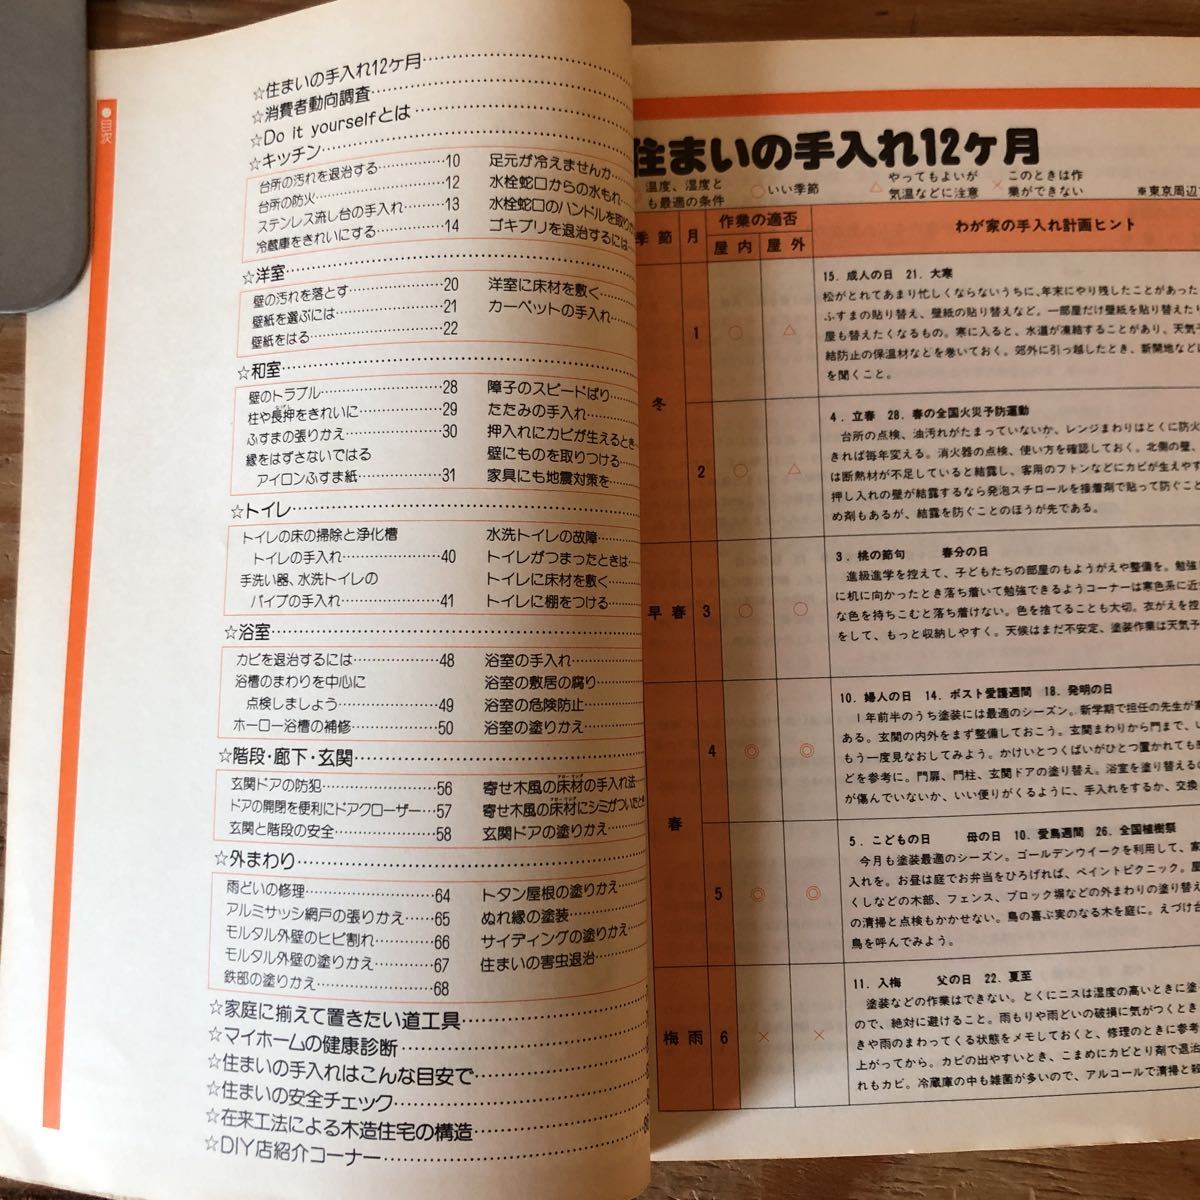 ●目次
☆住まいの手入れ12ケ月
☆消費者動向調査
☆Do it yourselfとは
☆キッチン
台所の汚れを退治する……………10
台所の防火……………12
ステンレス流し台の手入れ……………13
冷蔵庫をきれいにする……………14
足元が冷えませんか
水栓蛇口からの水もれ
水栓蛇口のハンドルを取りか
ゴキブリを退治するには
☆洋室
壁の汚れを落とす……………20
壁紙を選ぶには……………21
壁紙をはる……………22
洋室に床材を敷く
カーペットの手入れ
☆和室
壁のトラブル……………28
柱や長押をきれいに……………29
ふすまの張りかえ……………30
縁をはずさないではる
アイロンふすま紙……………31
障子のスピードばり
たたみの手入れ
押入れにカビが生えるとき
壁にものを取りつける
家具にも地震対策を
☆トイレ
トイレの床の掃除と浄化槽
トイレの手入れ……………40
手洗い器、水洗トイレの
パイプの手入れ……………41
水洗トイレの故障
トイレがつまったときは
トイレに床材を敷く
トイレに棚をつける
☆浴室
カビを退治するには……………48
浴槽のまわりを中心に
点検しましょう……………49
ホーロー浴槽の補修……………50
浴室の手入れ
浴室の敷居の腐り
浴室の危険防止
浴室の塗りかえ
☆階段・廊下・玄関
玄関ドアの防犯……………56
ドアの開閉を便利にドアクローザー…57
玄関と階段の安全……………58
寄せ木風の床材の手入れ法
寄せ木風の床材にシミがついたとき
玄関ドアの塗りかえ
☆外まわり
雨どいの修理……………64
アルミサッシ網戸の張りかえ……………65
モルタル外壁のヒビ割れ……………66
モルタル外壁の塗りかえ……………67
鉄部の塗りかえ……………68
トタン屋根の塗りかえ
ぬれ縁の塗装
サイディングの塗りかえ
住まいの害虫退治
☆家庭に揃えて置きたい道工具
☆マイホームの健康診断
☆住まいの手入れはこんな目安で
☆住まいの安全チェック
☆在来工法による木造住宅の構造
☆DIY店紹介コーナー
住まいの手入れ12ケ月
温度、湿度と
も最適の条件
○いい季節
△やってもよいが
気温などに注意
×このときは作
業ができない
※東京周辺
季節 月 作業の適否 わが家の手入れ計画ヒント
屋内 屋外
冬
1 ○ △
15．成人の日 21．大寒
松がとれてあまり忙しくならないうちに、年末にやり残したことがあった
ふすまの貼り替え、壁紙の貼り替えなど。一部屋だけ壁紙を貼り替えたり
屋も替えたくなるもの。寒に入ると、水道が凍結することがあり、天気予
結防止の保温材などを巻いておく。郊外に引っ越したとき、新開地などに
を聞くこと。
2 ○ △
4．立春 28．春の全国火災予防運動
台所の点検、油汚れがたまっていないか、レンジまわりはとくに防火
きれば毎年変える。消火器の点検、使い方を確認しておく。北側の壁、
は断熱材が不足していると結露し、客用のフトンなどにカビが生えやす
押し入れの壁が結露するなら発泡スチロールを接着剤で貼って防ぐこと
め剤もあるが、結露を防ぐことのほうが先である。
早春 3 ○ ○
3．桃の節句 春分の日
進級進学を控えて、子どもたちの部屋のもようがえや整備を。勉強
に机に向かったとき落ち着いて勉強できるようコーナーは寒色系に近
な色を持ちこむと落ち着けない。色を捨てることも大切。衣がえを控
をして、もっと収納しやすく。天候はまだ不安定、塗装作業は天気予
春
4 ◎ ◎
10．婦人の日 14．ポスト愛護週間 18．発明の日
1年前半のうち塗装には最適のシーズン。新学期で担任の先生が家
ある。玄関の内外をまず整備しておこう。玄関まわりから門まで、い
もう一度見なおしてみよう。かけいとつくばいがひとつ置かれても
どを参考に。門扉、門柱、玄関ドアの塗り替え。浴室を塗り替えるの
が傷んでいないか、いい便りがくるように、手入れをするか、交換
5 ◎ ◎
5．こどもの日 母の日 10．愛鳥週間 26．全国植樹祭
今月も塗装最適のシーズン。ゴールデンウイークを利用して、家
入れを。お昼は庭でお弁当をひろげれば、ペイントピクニック。屋
くしなどの木部、フェンス、ブロック塀などの外まわりの塗り替え
の清掃と点検もかかせない。鳥の喜ぶ実のなる木を庭に。えづけ台
鳥を呼んでみよう。
梅雨 6 × ×
11．入梅 父の日 22．夏至
塗装などの作業はできない。とくにニスは湿度の高いときに塗
ので、絶対に避けること。雨もりや雨どいの破損に気がつくとき
きや雨のまわってくる状態をメモしておくと、修理のときに参考
上がってから。カビの出やすいとき、こまめにカビとり剤で退治
れもカビ。冷蔵庫の中も雑菌が多いので、アルコールで清掃と殺